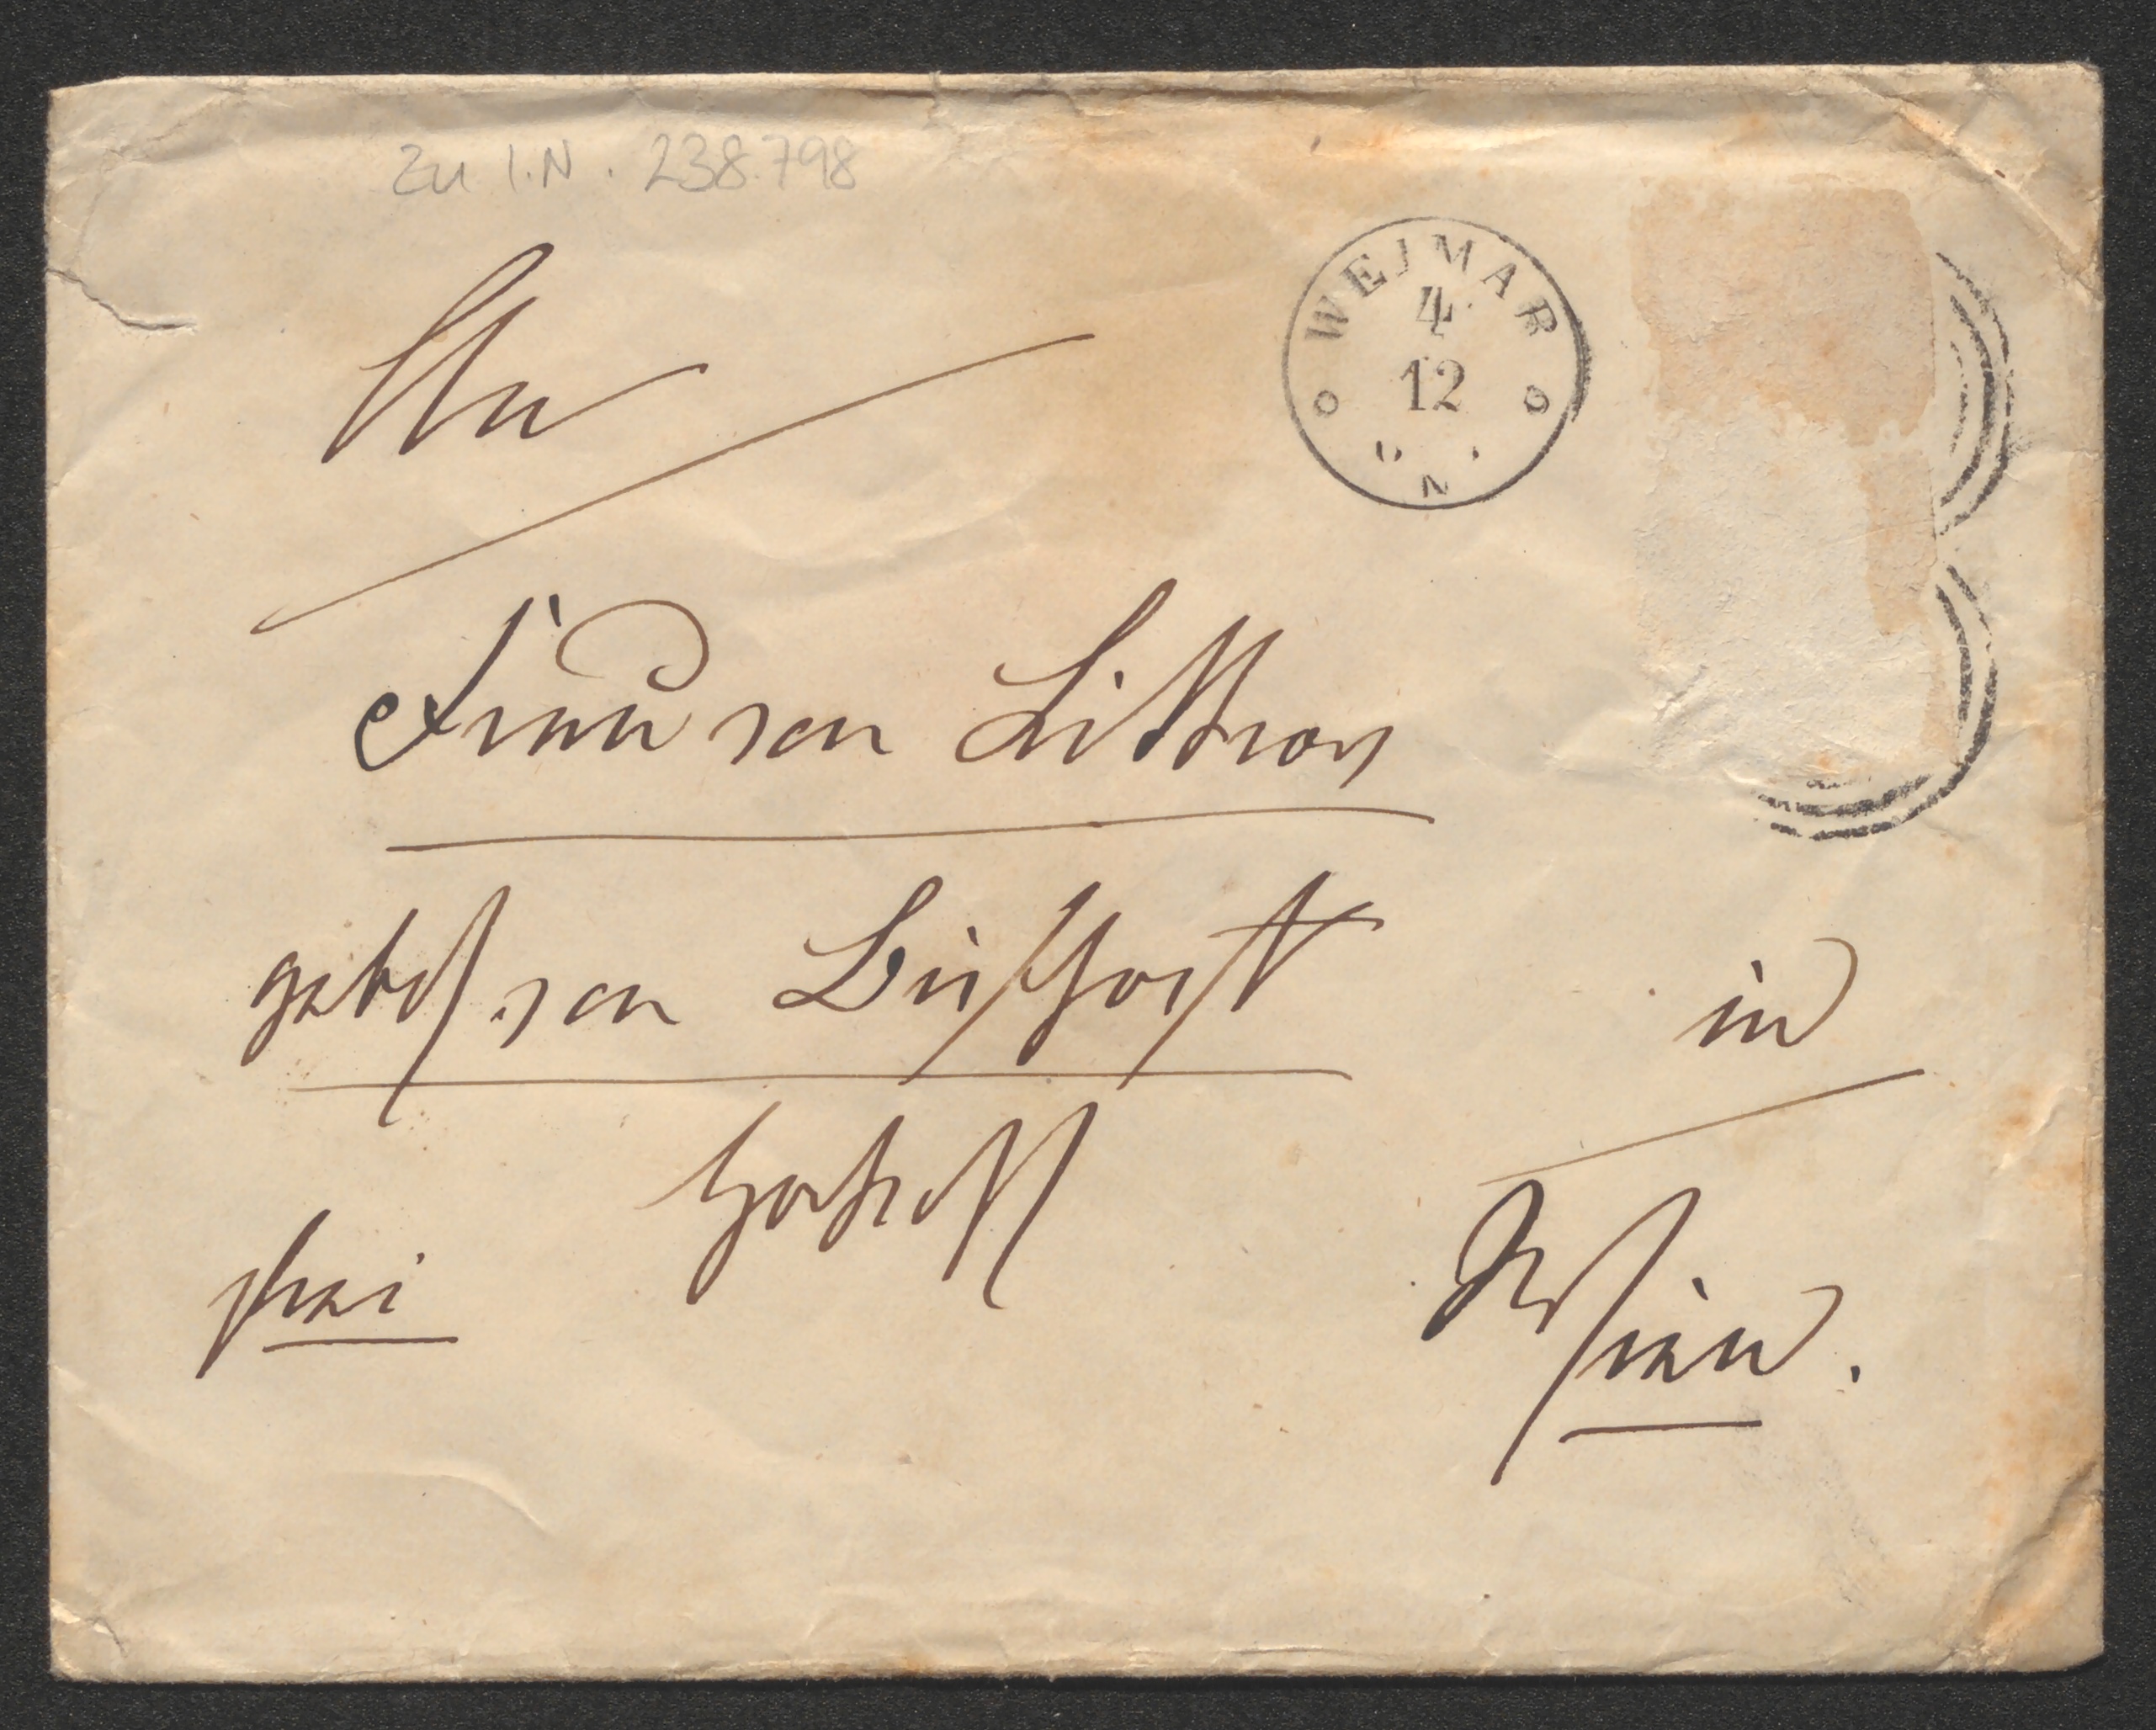 Zu I.N. 238.798
WEIMAR
4
12
N
An
Frau von Littrow
von Bischoff
in
frei
Wien.